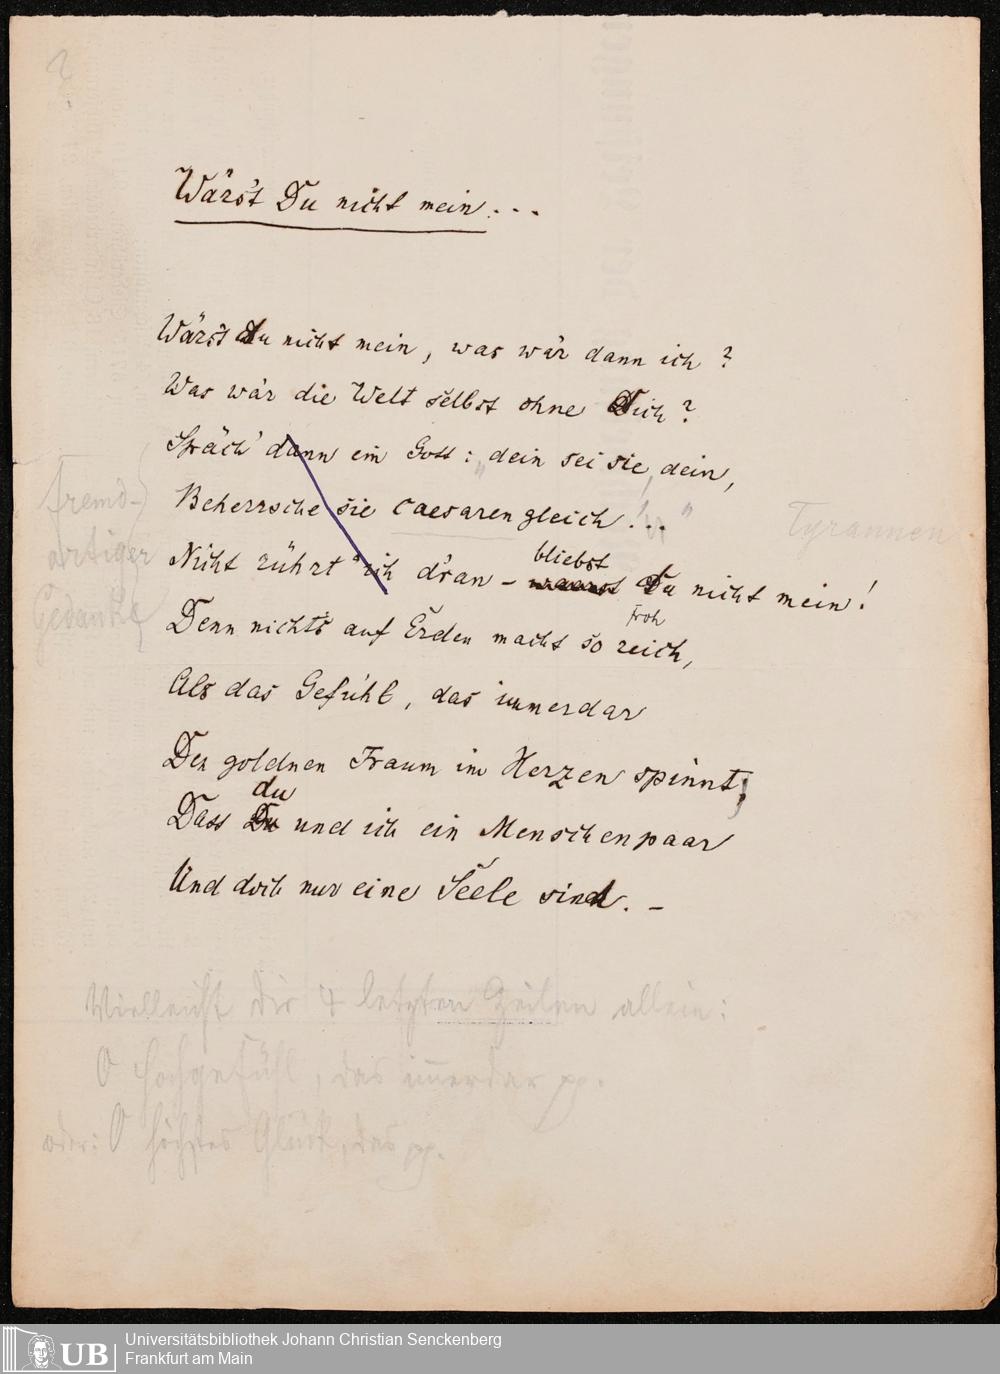 ?
Wärs't Du nicht mein...
Wärs't du nicht mein, was wär dann ich?
Was wär die Welt selbst ohne Dich?
Spräch' dann ein Gott: „dein sei sie, dein,
Beherrsche sie caesarengleich!..."
Tyrannen
fremd-
artiger
Gedanke
bliebst
Nicht rührt' ich d'ran – waerst Du nicht mein!
froh
Denn nichts auf Erden macht so reich,
Als das Gefühl, das immerdar
Den goldnen Traum im Herzen spinnt;
du
Dass Du und ich ein Menschenpaar
Und doch nur eine Seele sind. –
Vielleicht die 4 letzten Zeilen allein:
O Hochgefühl, das immerdar pp.
oder: O höchstes Glück, das pp.
UB
Universitätsbibliothek Johann Christian Senckenberg
Frankfurt am Main